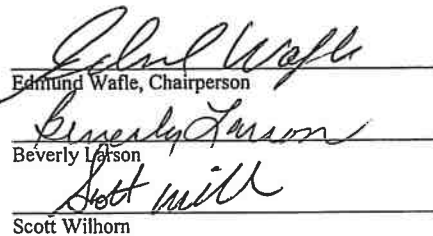 Edmund Wafle
Edmund Wafle, Chairperson
Beverly Larson
Beverly Larson
Scott
Scott Wilhorn